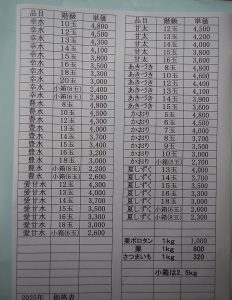 品目 階級 単価
幸水 10玉 4,800
幸水 12玉 4,500
幸水 13玉 4,300
幸水 14玉 4,100
幸水 15玉 3,800
幸水 16玉 3,600
幸水 18玉 3,300
幸水 20玉 3,000
幸水 小箱(8玉) 2,400
幸水 小箱(6玉) 2,800
豊水 8玉 4,800
豊水 10玉 4,500
豊水 12玉 4,300
豊水 13玉 4,000
豊水 14玉 3,700
豊水 15玉 3,400
豊水 16玉 3,200
豊水 18玉 3,000
豊水 小箱(6玉) 2,600
愛甘水 12玉 4,300
愛甘水 13玉 4,000
愛甘水 14玉 3,700
愛甘水 15玉 3,500
愛甘水 16玉 3,300
愛甘水 18玉 3,000
愛甘水 小箱(6玉) 2,600
2025年 価格表
品目 階級 単価
甘太 12玉 4,500
甘太 13玉 4,200
甘太 14玉 4,000
甘太 15玉 3,800
甘太 16玉 3,600
あきづき 8玉 4,800
あきづき 10玉 4,600
あきづき 12玉 4,400
あきづき 13玉 4,200
あきづき 14玉 4,000
あきづき 小箱 2,800
かおり 5玉 4,800
かおり 6玉 4,500
かおり 7玉 4,000
かおり 8玉 3,700
かおり 9玉 3,500
かおり 10玉 3,000
かおり 小箱 2,600
夏しずく 13玉 4,000
夏しずく 14玉 3,700
夏しずく 15玉 3,500
夏しずく 小箱(6玉) 2,600
夏しずく 小箱 2,300
栗ポロタン 1kg 1,000
栗 1kg 800
さつまいも 1kg 320
小箱は2.5kg